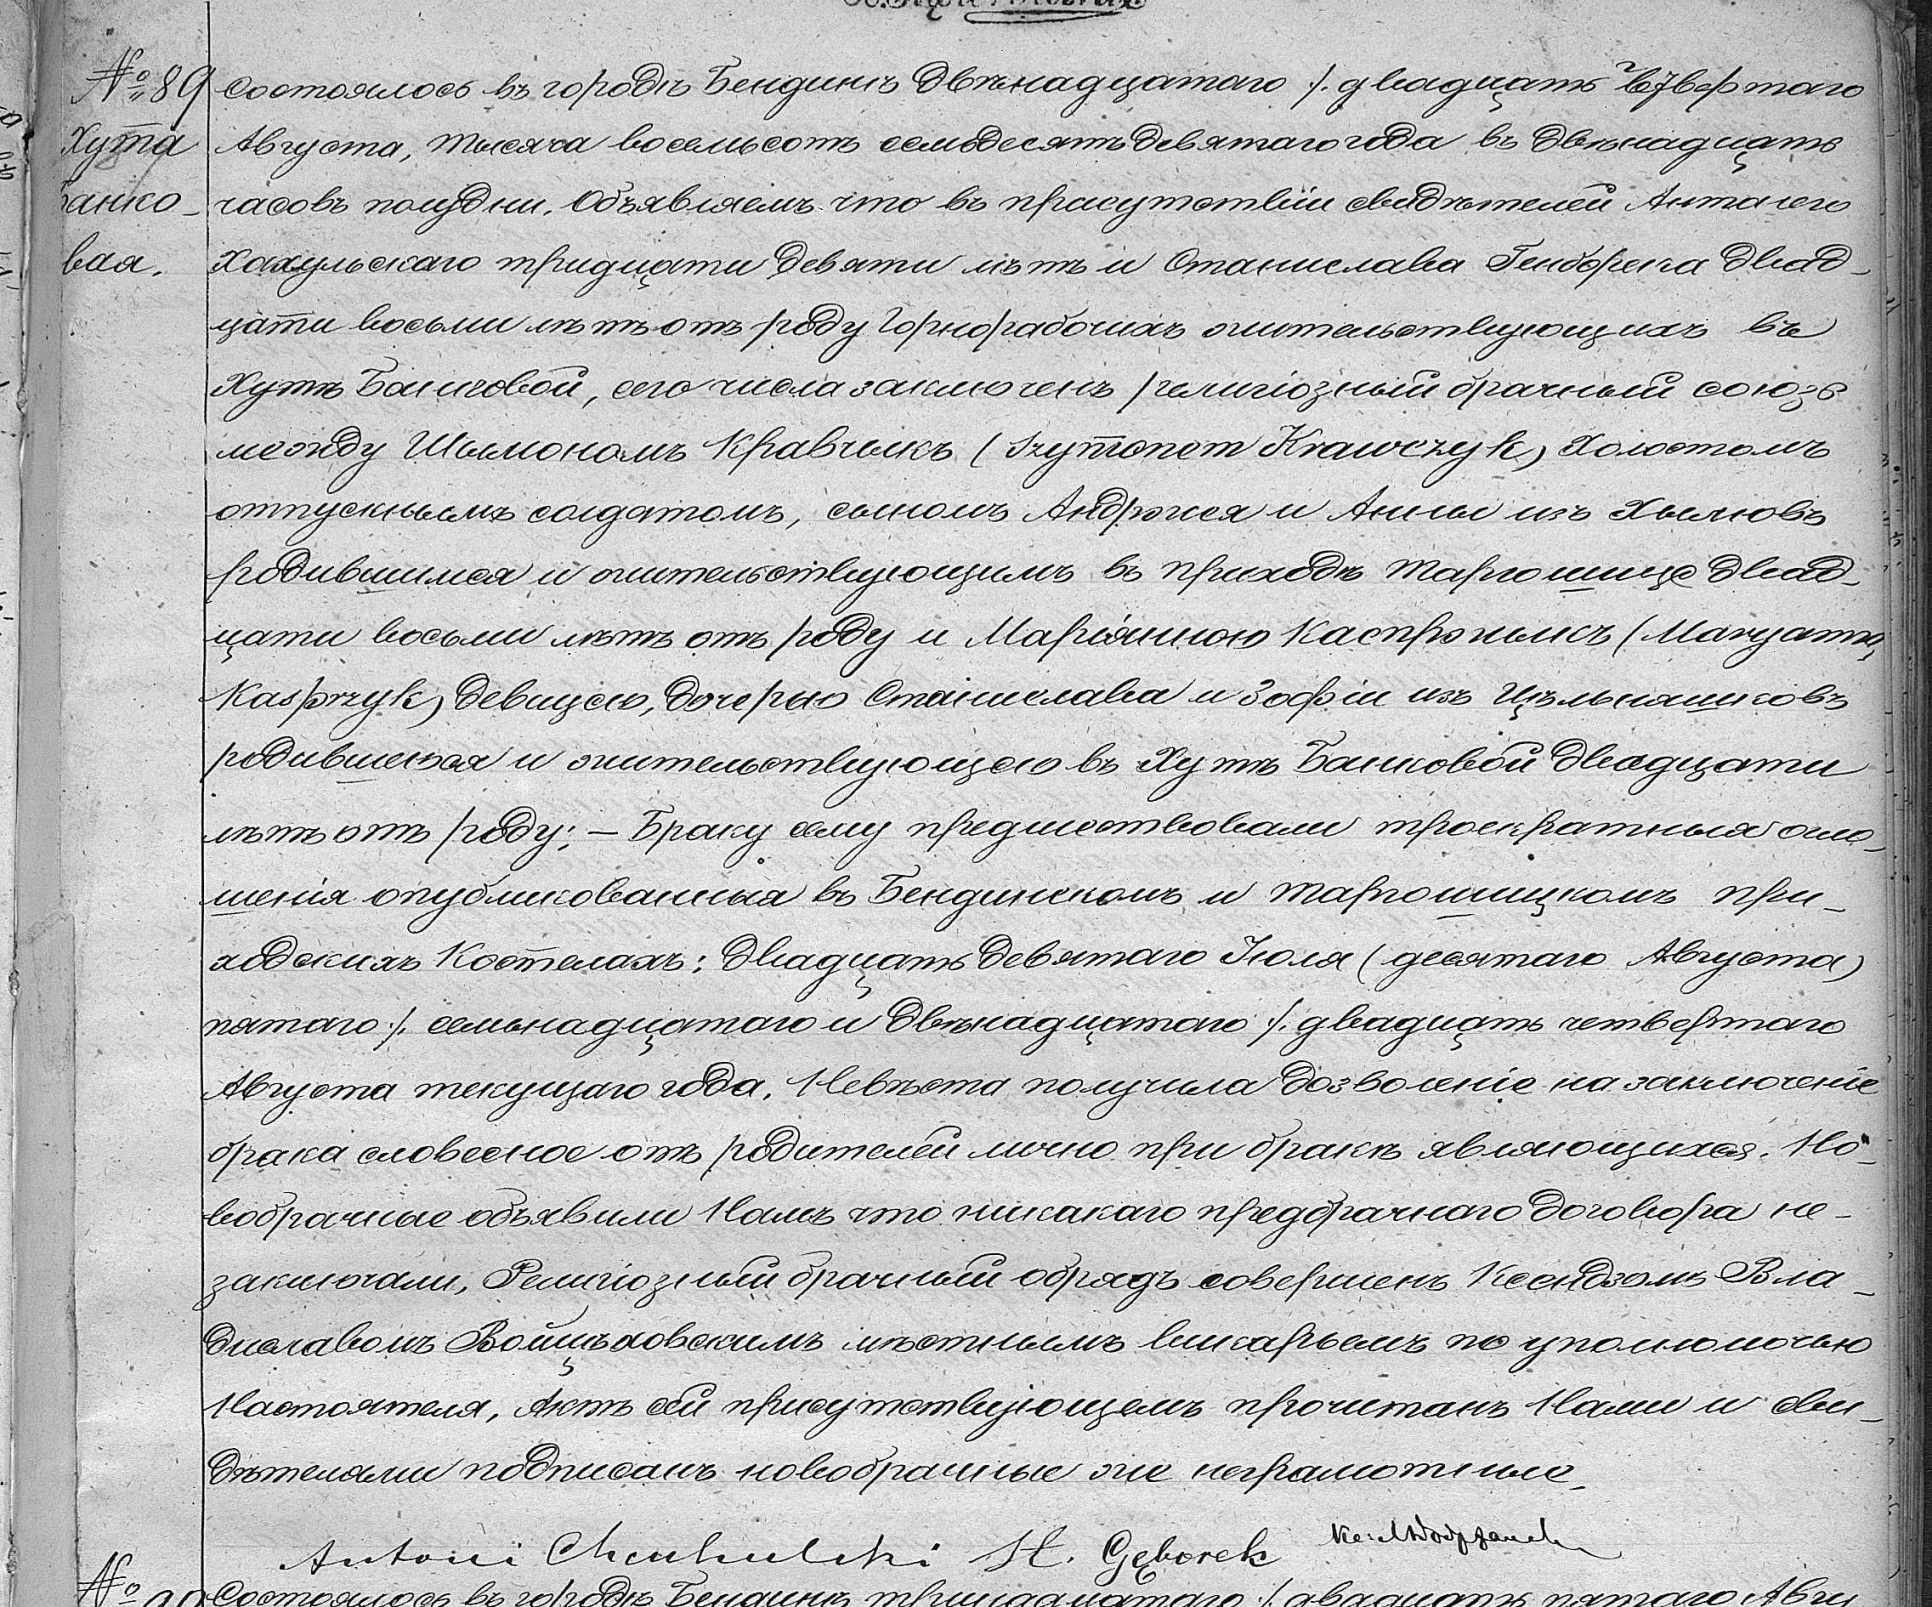 № 89 Состоялось въ городѣ Бендинѣ двѣнадцатаго ·/. двадцать четвертаго
Хута Августа, тысяча восемьсотъ семьдесятъ девятаго года въ двѣнадцать
Банко- часовъ полудни. Объявляемъ что въ присутствіи свидѣтелей Антонего
вая. Хахульскаго тридцати девяти лѣтъ и Станислава Генборека двад-
цати восьми лѣтъ отъ роду горнорабочихъ жительствующихъ въ
Хутѣ Банковой, сего числа заключенъ религіозный брачный союзъ
между Шымономъ Кравчыкъ (Szymonem Krawczyk) холостомъ
отпускнымъ солдатомъ, сыномъ Андржея и Анны изъ Хымовъ
родившимся и жительствующимъ въ приходѣ Таргошице двад-
цати восьми лѣтъ отъ роду и Маріянною Каспржыкъ (Maryanną
Kasprzyk) девицею, дочерью Станислава и Зофіи изъ Цѣльняшковъ
родившеюся и жительствующею въ Хутѣ Банковой двадцати
лѣтъ отъ роду; — Браку сему предшествовали троекратныя огло-
шенія опубликованныя въ Бендинскомъ и Таргошицкомъ при-
ходскихъ Костелахъ: двадцать девятаго Іюля (десятаго Августа)
пятаго ·/. семьнадцатаго и двѣнадцатаго ·/. двадцать четвертаго
Августа текущаго года. Невѣста получила дозволеніе на заключеніе
брака словесное отъ родителей лично при бракѣ являющихся. Но-
вобрачные объявили Намъ что никакаго предбрачнаго договора не-
заключали, Религіозный брачный обрядъ совершенъ Ксендзомъ Вла-
диславомъ Войцѣховскимъ мѣстнымъ викарьемъ по уполномочью
Настоятеля, Актъ сей присутствующемъ прочитанъ Нами и сви-
дѣтелями подписанъ новобрачные же неграмотные.
Antoni Chachulski St. Gęborek
№ 90 Состоялось въ городѣ Бендинѣ тринадцатаго ·/. двадцать пятаго Авгу